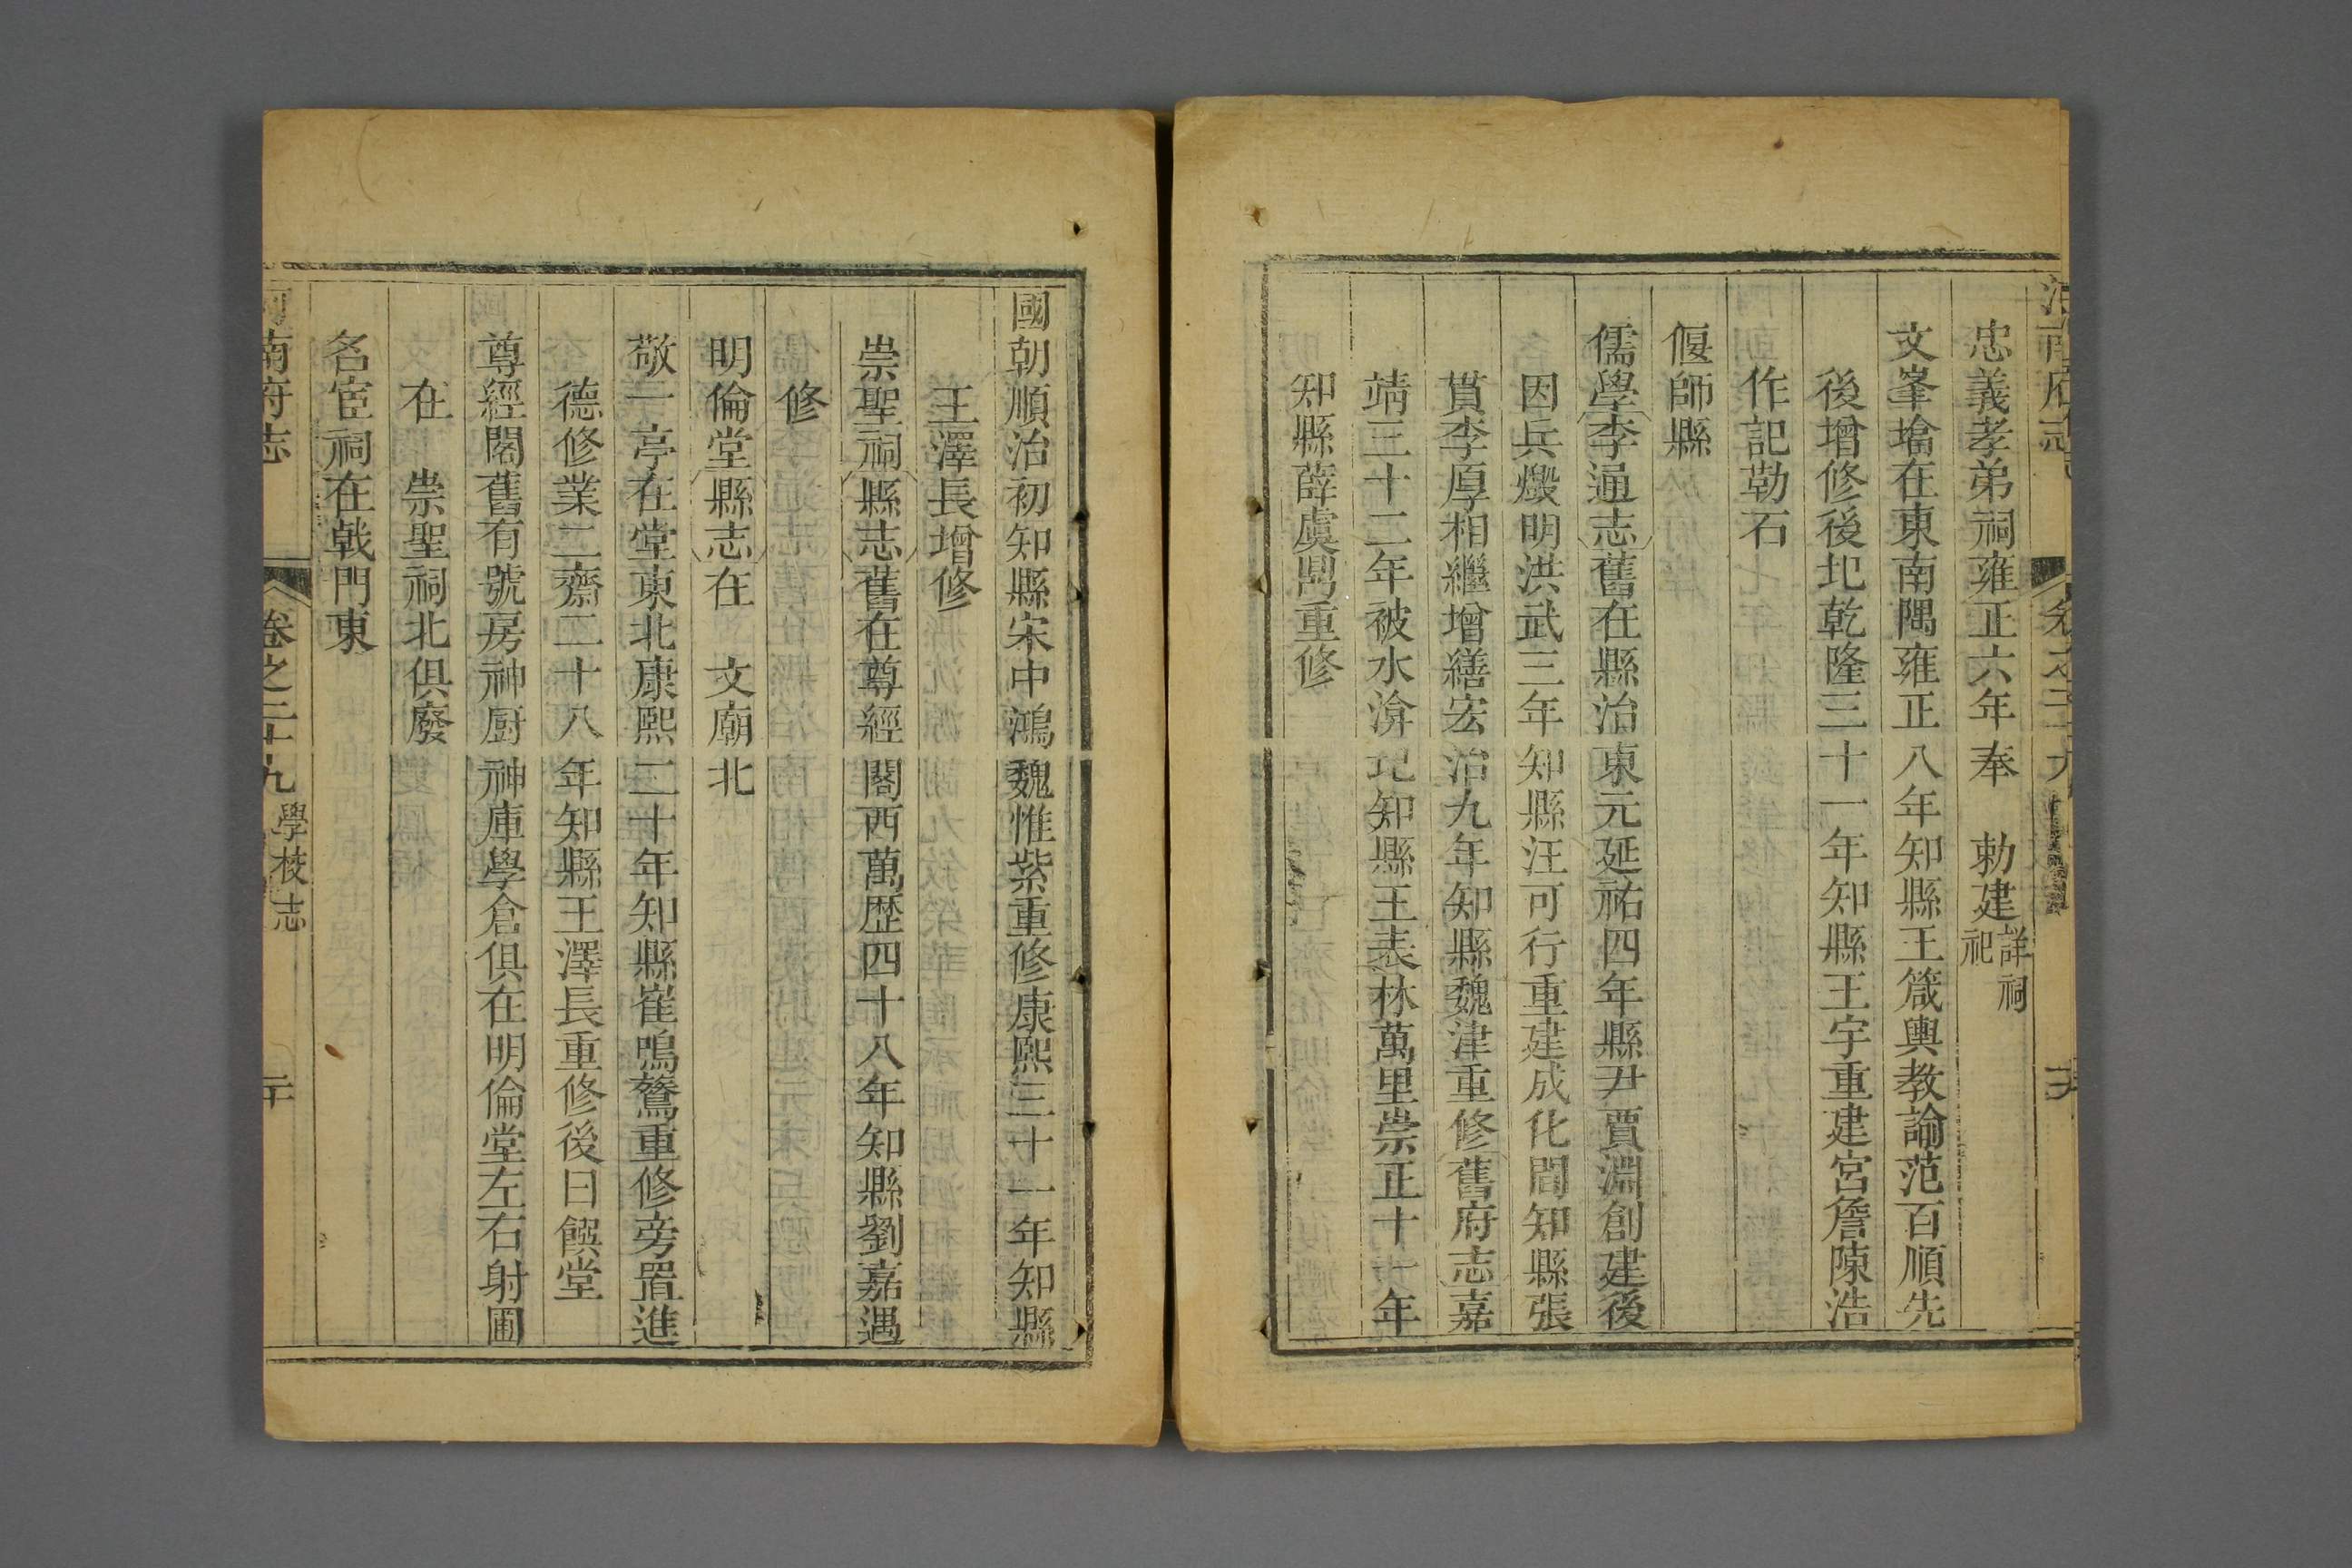 忠義孝弟祠雍正六年奉　勅建詳祠祀
文峯塔在東南隅雍正八年知縣王箴輿教諭范百順先
後增修後圮乾隆三十一年知縣王宇重建宮詹陳浩
作記勒石
偃師縣
儒學李通志舊在縣治東元延祐四年縣尹賈淵創建後
因兵燬明洪武三年知縣汪可行重建成化間知縣張
貫李厚相繼增繕宏治九年知縣魏津重修舊府志嘉
靖三十二年被水渰圮知縣王表林萬里崇正十一年
知縣薛虞卾重修
國朝順治初知縣宋中鴻魏惟紫重修康熙三十一年知縣
王澤長增修
崇聖祠縣志舊在尊經閣西萬歷四十八年知縣劉嘉遇
修
明倫堂縣志在　文廟北
敬一亭在堂東北康熙二十年知縣崔鳴鷟重修旁置進
德修業二齋二十八年知縣王澤長重修後曰饌堂
尊經閣舊有號房神厨神庫學倉俱在明倫堂左右射圃
在　崇聖祠北俱廢
名宦祠在戟門東
河南府志　卷之二十九　學校志　二十